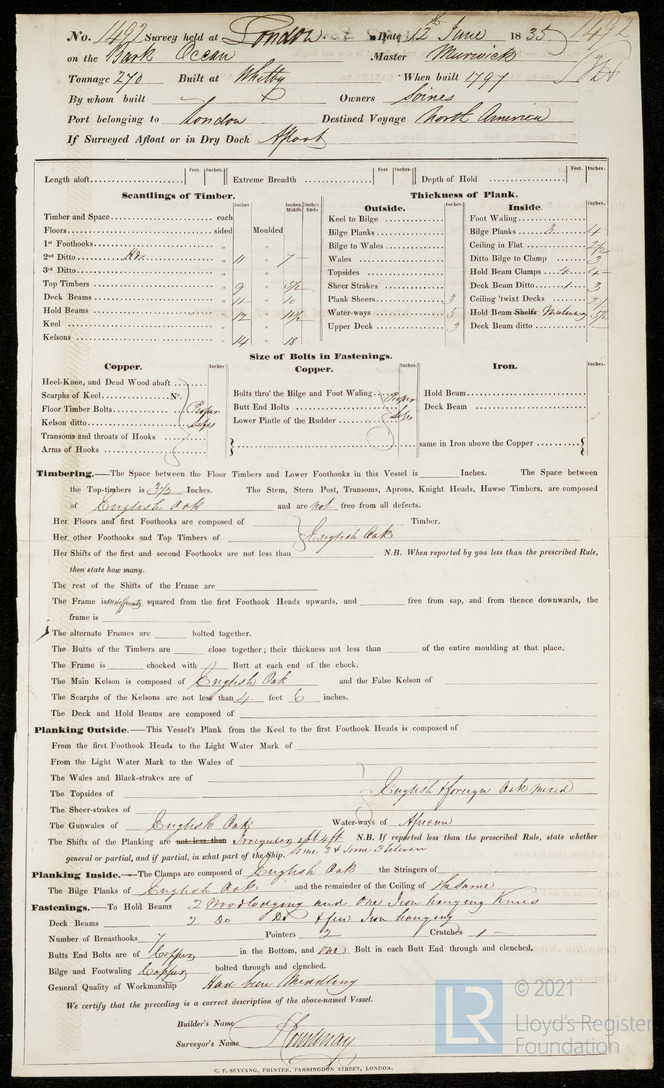 No. 1492 Survey held at London Date 12th June 1835 1492
on the Bark Ocean Master
Tonnage 270 Built at Whitby When built 1797
By whom built Owners Soines
Port belonging to London Destined Voyage North America
If Surveyed Afloat or in Dry Dock Afloat
Length aloft Feet. Inches. Extreme Breadth Feet. Inches. Depth of Hold Feet. Inches.
Scantlings of Timber. Thickness of Plank.
Inches Inches Middle Inches Ends Outside. Inside.
Timber and Space each Keel to Bilge Foot Waling
Floors sided Moulded Bilge Planks Bilge Planks 3 4
1st Foothooks Bilge to Wales Ceiling in Flat 2 1/2
2nd Ditto 11 7 Wales Ditto Bilge to Clamp 3
3rd Ditto Topsides Hold Beam Clamps 4 4
Top Timbers 9 5 1/2 Sheer Strakes Deck Beam Ditto 1 3
Deck Beams 11 10 Plank Sheers 3 Ceiling 'twixt Decks
Hold Beams 12 11 1/2 Water-ways 5 Hold Beam Shelfs
Keel Upper Deck 3 Deck Beam ditto
Kelsons 14 18
Size of Bolts in Fastenings.
Copper. Inches Copper. Inches Iron. Inches.
Heel-Knee, and Dead Wood abaft
Scarphs of Keel No. Bolts thro' the Bilge and Foot Waling Proper Hold Beam
Floor Timber Bolts Proper Butt End Bolts Sizes Deck Beam
Kelson ditto Sizes Lower Pintle of the Rudder
Transoms and throats of Hooks
Arms of Hooks same in Iron above the Copper
Timbering.—The Space between the Floor Timbers and Lower Foothooks in this Vessel is Inches. The Space between
the Top-timbers is 3 1/2 Inches. The Stem, Stern Post, Transoms, Aprons, Knight Heads, Hawse Timbers, are composed
of English Oak and are not free from all defects.
Her Floors and first Foothooks are composed of Timber.
Her other Foothooks and Top Timbers of English Oak
Her Shifts of the first and second Foothooks are not less than N.B. When reported by you less than the prescribed Rule,
then state how many.
The rest of the Shifts of the Frame are
The Frame is indifferently squared from the first Foothook Heads upwards, and free from sap, and from thence downwards, the
frame is
The alternate Frames are bolted together.
The Butts of the Timbers are close together; their thickness not less than of the entire moulding at that place.
The Frame is chocked with Butt at each end of the chock.
The Main Kelson is composed of English Oak and the False Kelson of
The Scarphs of the Kelsons are not less than 4 feet 6 inches.
The Deck and Hold Beams are composed of
Planking Outside.—This Vessel's Plank from the Keel to the first Foothook Heads is composed of
From the first Foothook Heads to the Light Water Mark of
From the Light Water Mark to the Wales of
The Wales and Black-strakes are of
The Topsides of English & foreign Oak mixed
The Sheer-strakes of
The Gunwales of English Oak Water-ways of African
The Shifts of the Planking are not less than Irregular N.B. If reported less than the prescribed Rule, state whether
general or partial, and if partial, in what part of the Ship. some
Planking Inside.—The Clamps are composed of English Oak the Stringers of
The Bilge Planks of English Oak and the remainder of the Ceiling of The same
Fastenings.—To Hold Beams 2 Wood lodging and One Iron hanging Knees
Deck Beams 2 Do Do & few Iron hanging
Number of Breasthooks 7 Pointers 2 Crutches 1
Butts End Bolts are of Copper in the Bottom, and One Bolt in each Butt End through and clenched.
Bilge and Footwaling Copper bolted through and clenched.
General Quality of Workmanship Has been Middling
We certify that the preceding is a correct description of the above-named Vessel.
Builder's Name
Surveyor's Name Courtenay
C. F. SEYFANG, PRINTER, FARRINGDON STREET, LONDON.
LR © 2021
Lloyd's Register
Foundation